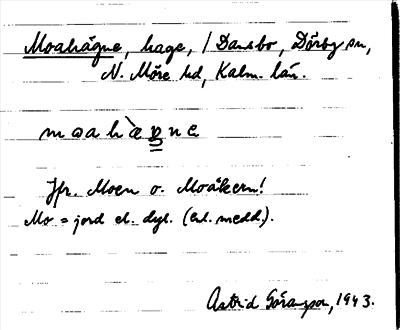 Moahägne, hage, / Dansbo, Dörby sn,
N. Möre hd, Kalm. län.
moahæ̀gne
Jfr. Moen o. Moåkern!
Mo = jord el. dyl. (enl. medd.).
Astrid Göransson, 1943.